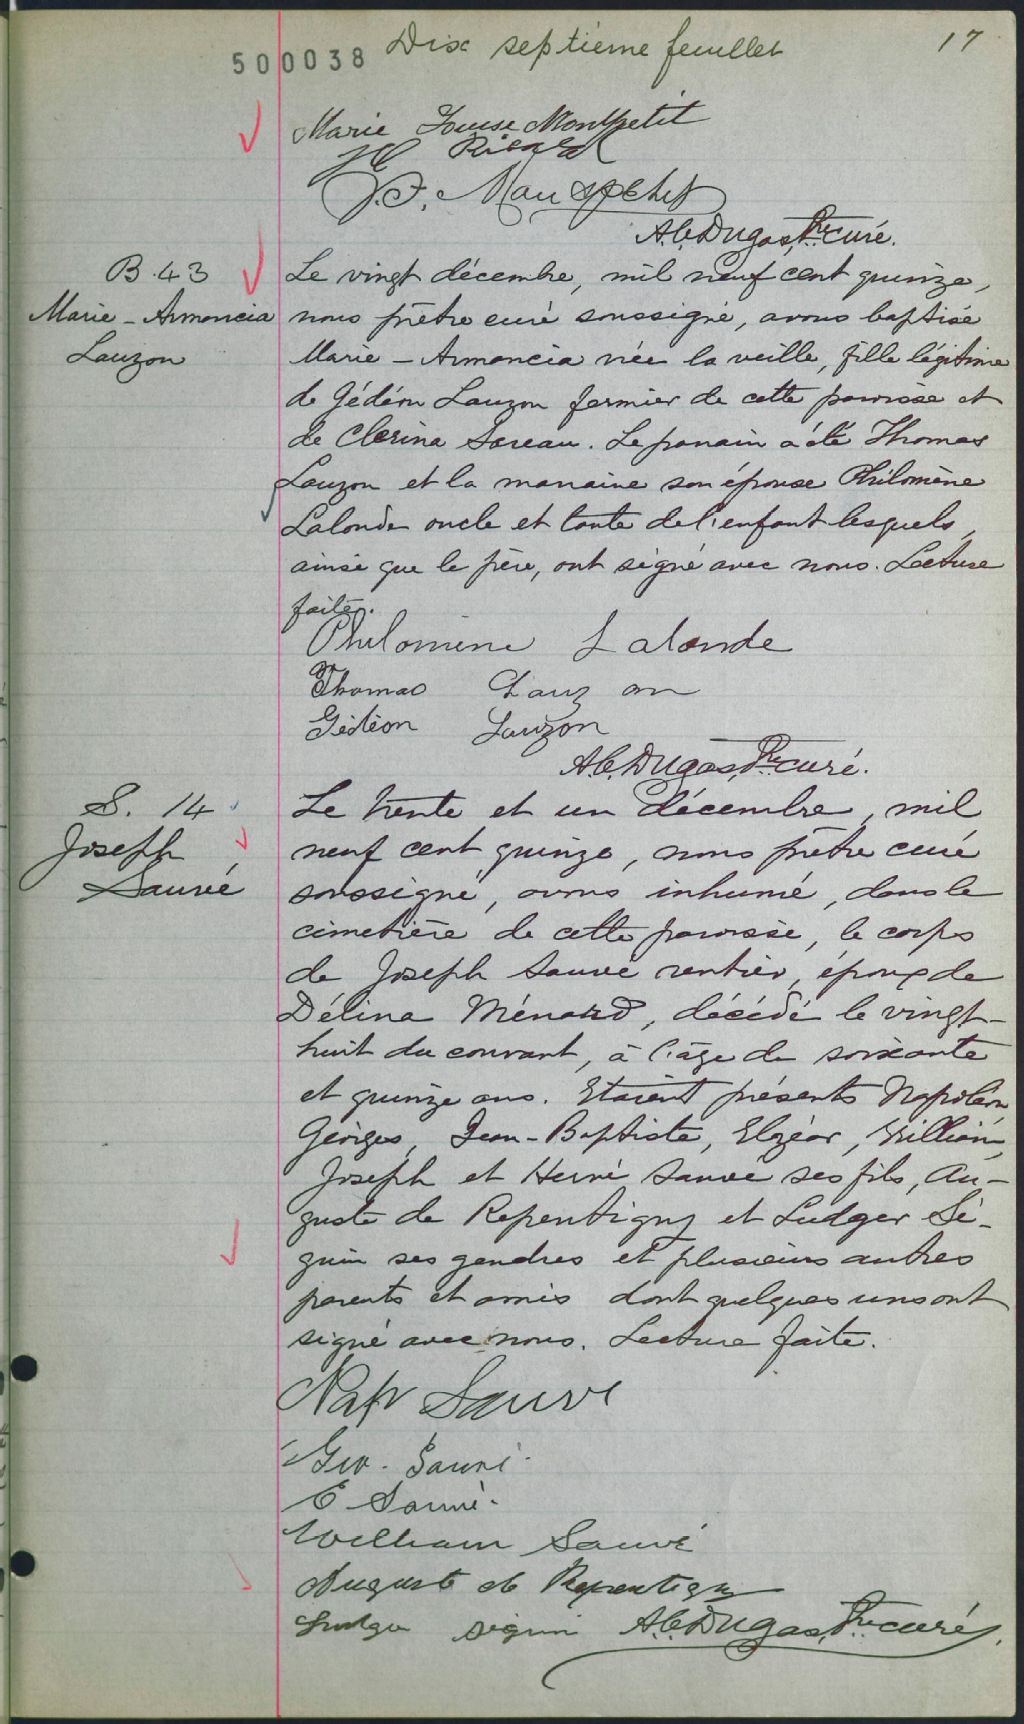 500038 Dix septième feuillet 17
Marie Louise Montpetit
Ricard
A. C. Dugas, Ptre curé.
B. 43
Marie - Armancia
Lauzon
Le vingt décembre, mil neuf cent quinze,
nous prêtre curé soussigné, avons baptisé
Marie - Armancia née la veille, fille légitime
de Gédéon Lauzon fermier de cette paroisse et
de Clerina Sereau. Le parrain a été Thomas
Lauzon et la marraine son épouse Philomène
Lalonde oncle et tante de l'enfant lesquels,
ainsi que le père, ont signé avec nous. Lecture
faite.
Philomène Lalonde
Thomas Lauzon
Gédéon Lauzon
A. C. Dugas, Ptre curé.
S. 14
Joseph
Sauvé
Le trente et un décembre, mil
neuf cent quinze, nous prêtre curé
soussigné, avons inhumé, dans le
cimetière de cette paroisse, le corps
de Joseph Sauvé rentier, époux de
Délina Ménard, décédé le vingt-
huit du courant, à l'âge de soixante
et quinze ans. Etaient présents Napoléon,
Géorges, Jean-Baptiste, Elzéar, William,
Joseph et Hervé Sauvé ses fils, Au-
guste de Repentigny et Ludger Sé-
guin ses gendres et plusieurs autres
parents et amis dont quelques uns ont
signé avec nous. Lecture faite.
Nap Sauvé
Geo. Sauvé.
E Sauvé.
William Sauvé
Auguste de Repentigny
Ludger Séguin A. C. Dugas, Ptre curé.